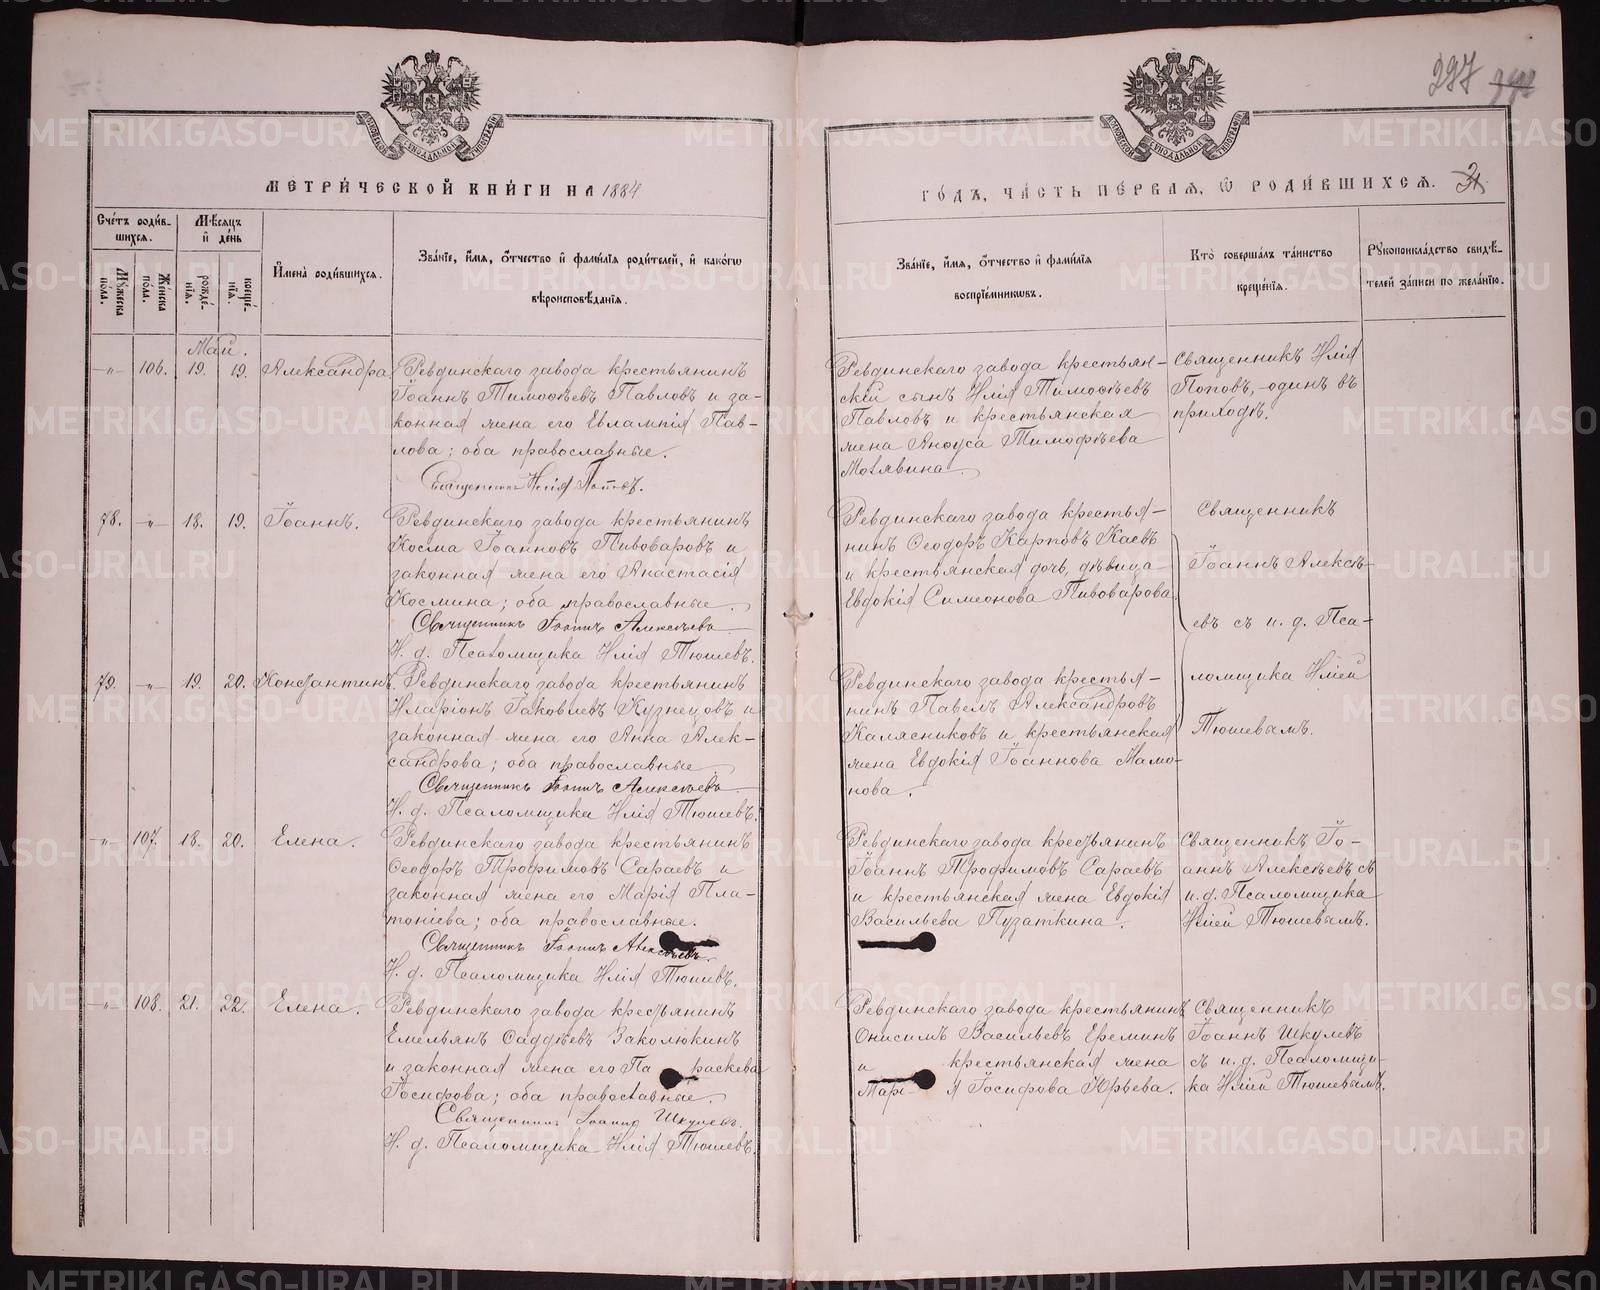 297
МЕТРИ́ЧЕСКОЙ КНИ́ГИ НА 1884
ГО́ДЪ, ЧА́СТЬ ПЕ́РВАЯ, Ѿ РОДИ́ВШИХСЯ.
Сче́тъ роди́в-
шихся.
Мѣ́сяцъ
и де́нь
Му́жеска
пола.
Же́нска
пола.
рожде́-
нїя.
креще́-
нїя.
И҆мена̀ роди́вшихся.
Зва́нїе, и҆́мя, о҆́тчество и҆ фами́лїя роди́телей, и҆ како́гѡ
вѣроисповѣ́данїя.
Зва́нїе, и҆́мя, о҆́тчество и҆ фами́лїя
воспрїе́мникѡвъ.
Кто̀ соверша́лъ та́инство
креще́нїя.
Рукоприкла́дство свидѣ́-
телей за́писи по жела́нїю.
Май.
-"- 106. 19. 19. Александра
Ревдинскаго завода крестьянинъ
Іоаннъ Тимоѳѣевъ Павловъ и за-
конная жена его Евлампія Пав-
лова; оба православные.
Священникъ Илія Поповъ.
Ревдинскаго завода крестьян-
скій сынъ Илія Тимоѳѣевъ
Павловъ и крестьянская
жена Тимофѣева
Священникъ Илія
Поповъ, одинъ въ
приходѣ.
78. -"- 18. 19. Іоаннъ.
Ревдинскаго завода крестьянинъ
Косма Іоанновъ Пивоваровъ и
законная жена его Анастасія
Космина; оба православные.
Священникъ Іоаннъ Алексѣевъ
И. д. Псаломщика Илія Тюшевъ.
Ревдинскаго завода крестья-
нинъ Ѳеодоръ Карповъ Каевъ
и крестьянская дочь, дѣвица
Евдокія Симеонова Пивоварова
Священникъ
Іоаннъ Алексѣ-
евъ съ и. д. Пса-
ломщика Иліей
Тюшевымъ.
79. -"- 19. 20. Константинъ.
Ревдинскаго завода крестьянинъ
Иларіонъ Іаковлевъ Кузнецовъ и
законная жена его Анна Алек-
сандрова; оба православные.
Священникъ Іоаннъ Алексѣевъ
И. д. Псаломщика Илія Тюшевъ.
Ревдинскаго завода крестья-
нинъ Павелъ Александровъ
Калясниковъ и крестьянская
жена Евдокія Іоаннова Мамо-
нова.
-"- 107. 18. 20. Елена.
Ревдинскаго завода крестьянинъ
Ѳеодоръ Трофимовъ Сараевъ и
законная жена его Марія Пла-
тоніева; оба православные.
Священникъ Іоаннъ Алексѣевъ.
И. д. Псаломщика Илія Тюшевъ.
Ревдинскаго завода крестьянинъ
Іоаннъ Трофимовъ Сараевъ
и крестьянская жена Евдокія
Васильева Пузаткина.
Священникъ Іо-
аннъ Алексѣевъ съ
и. д. Псаломщика
Иліей Тюшевымъ.
-"- 108. 21. 22. Елена.
Ревдинскаго завода крестьянинъ
Емельянъ Ѳаддѣевъ Заколюкинъ
и законная жена его Параскева
Іосифова; оба православные.
Священникъ Іоаннъ Шкулевъ.
И. д. Псаломщика Илія Тюшевъ.
Ревдинскаго завода крестьянинъ
Онисимъ Васильевъ Ереминъ
и крестьянская жена
Марія Іосифова Юрьева.
Священникъ
Іоаннъ Шкулевъ
съ и. д. Псаломщи-
ка Иліей Тюшевымъ.